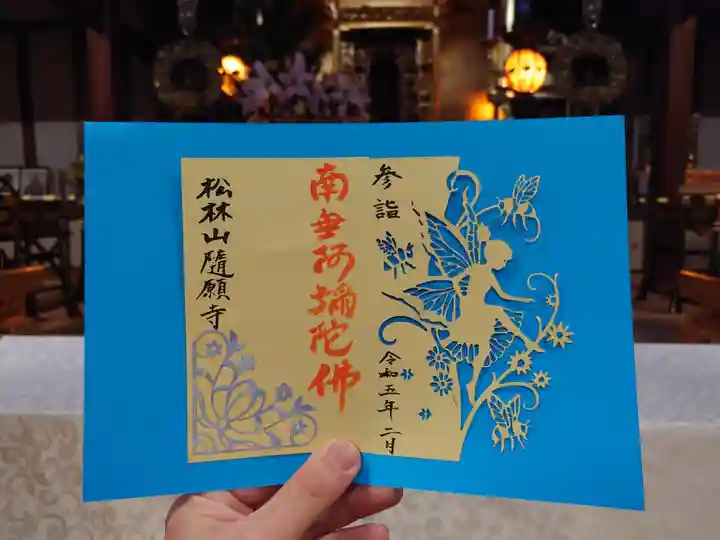 参詣
令和五年二月
南無阿彌陀佛
松林山隨願寺